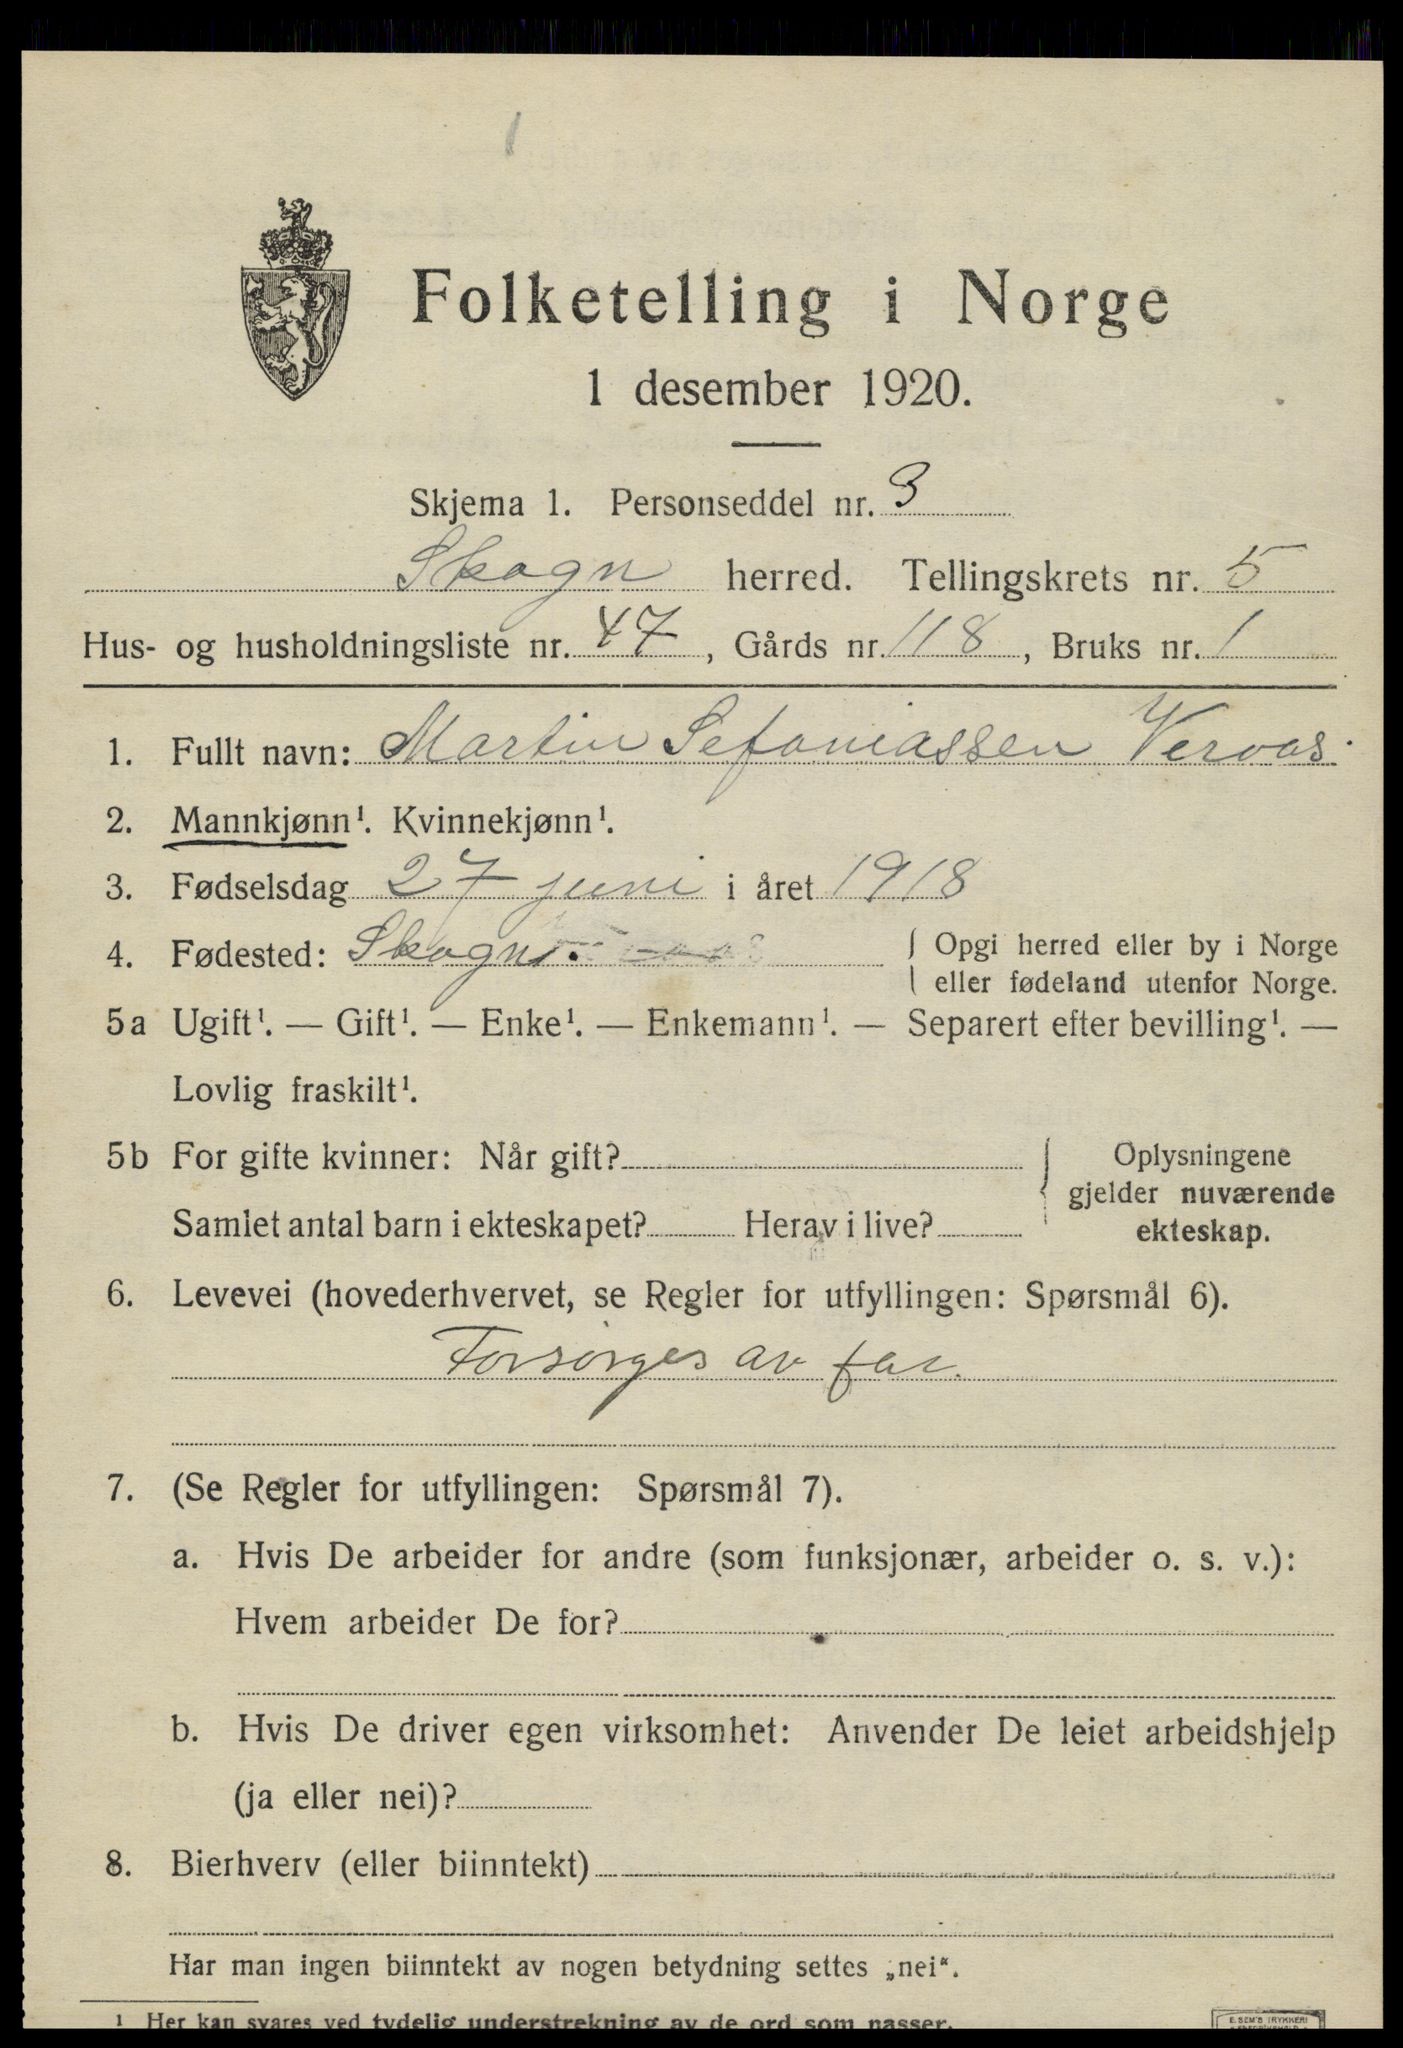 1
Folketelling i Norge
1 desember 1920.
Skjema 1. Personseddel nr. 3
Skogn herred. Tellingskrets nr. 5
Hus- og husholdningsliste nr. 47, Gårds nr. 118, Bruks nr. 1
1. Fullt navn: Martin Sefaniassen Veraas.
2. Mannkjønn¹. Kvinnekjønn¹.
3. Fødselsdag 27 juni i året 1918
4. Fødested: Skogn. { Opgi herred eller by i Norge
eller fødeland utenfor Norge.
5a Ugift¹. — Gift¹. — Enke¹. — Enkemann¹. — Separert efter bevilling¹. —
Lovlig fraskilt¹.
5b For gifte kvinner: Når gift?
Samlet antal barn i ekteskapet? Herav i live?
{ Oplysningene
gjelder nuværende
ekteskap.
6. Levevei (hovederhvervet, se Regler for utfyllingen: Spørsmål 6).
Forsørges av far.
7. (Se Regler for utfyllingen: Spørsmål 7).
a. Hvis De arbeider for andre (som funksjonær, arbeider o. s. v.):
Hvem arbeider De for?
b. Hvis De driver egen virksomhet: Anvender De leiet arbeidshjelp
(ja eller nei)?
8. Bierhverv (eller biinntekt)
Har man ingen biinntekt av nogen betydning settes „nei“.
¹ Her kan svares ved tydelig understrekning av de ord som passer.
E. SEM'S TRYKKERI
- FREDRIKSHALD -